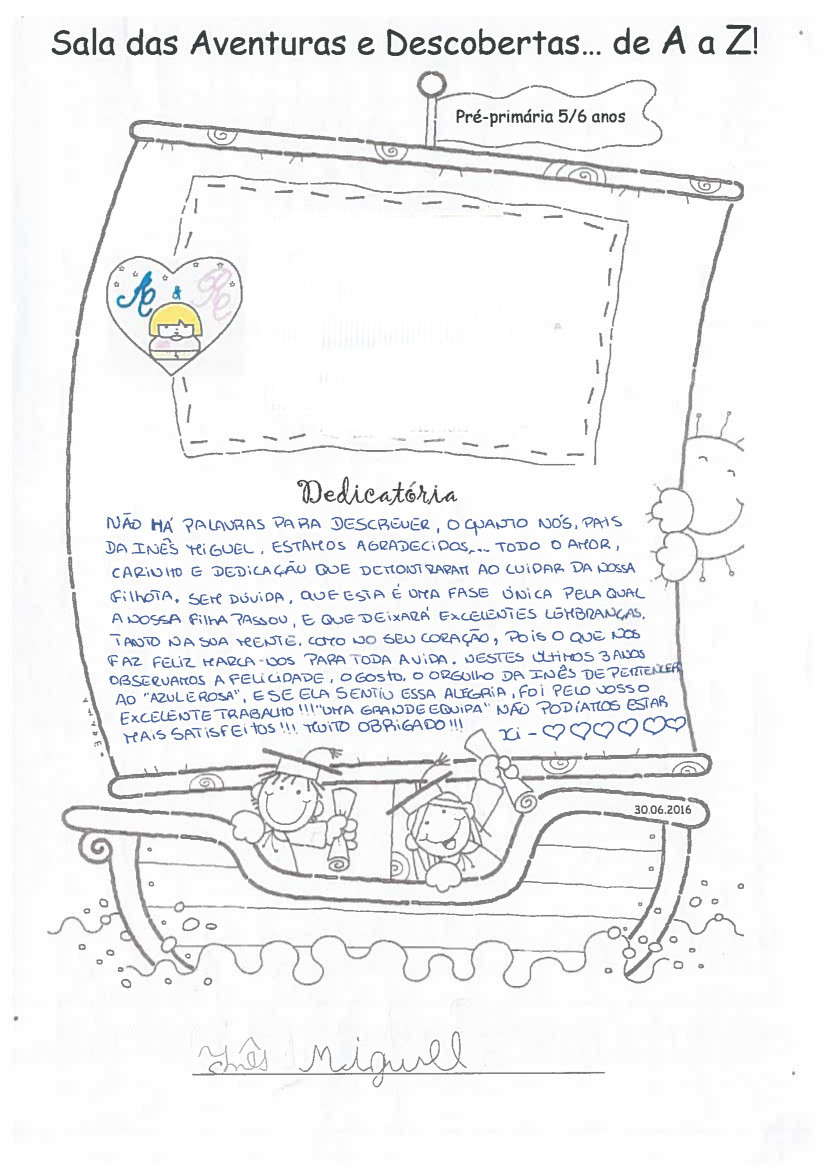 Sala das Aventuras e Descobertas... de A a Z!
Pré-primária 5/6 anos
A &
Dedicatória
NÃO HÁ PALAVRAS PARA DESCREVER, O QUANTO NÓS, PAIS
DA INÊS MIGUEL, ESTAMOS AGRADECIDOS,... TODO O AMOR,
CARINHO E DEDICAÇÃO QUE DEMONTRARAM AO CUIDAR DA NOSSA
FILHOTA. SEM DÚVIDA, QUE ESTA É UMA FASE ÚNICA PELA QUAL
A NOSSA FILHA PASSOU, E QUE DEIXARÁ EXCELENTES LEMBRANÇAS,
TANTO NA SUA MENTE, COMO NO SEU CORAÇÃO, POIS O QUE NOS
FAZ FELIZ MARCA-NOS PARA TODA A VIDA. NESTES ÚLTIMOS 3 ANOS
OBSERVAMOS A FELICIDADE, O GOSTO, O ORGULHO DA INÊS DE PERTENCER
AO "AZUL E ROSA", E SE ELA SENTIU ESSA ALEGRIA, FOI PELO VOSSO
EXCELENTE TRABALHO!!! "UMA GRANDE EQUIPA" NÃO PODÍAMOS ESTAR
MAIS SATISFEITOS!!! MUITO OBRIGADO!!! Xi - ♡♡♡♡♡♡
30.06.2016
Inês Miguel